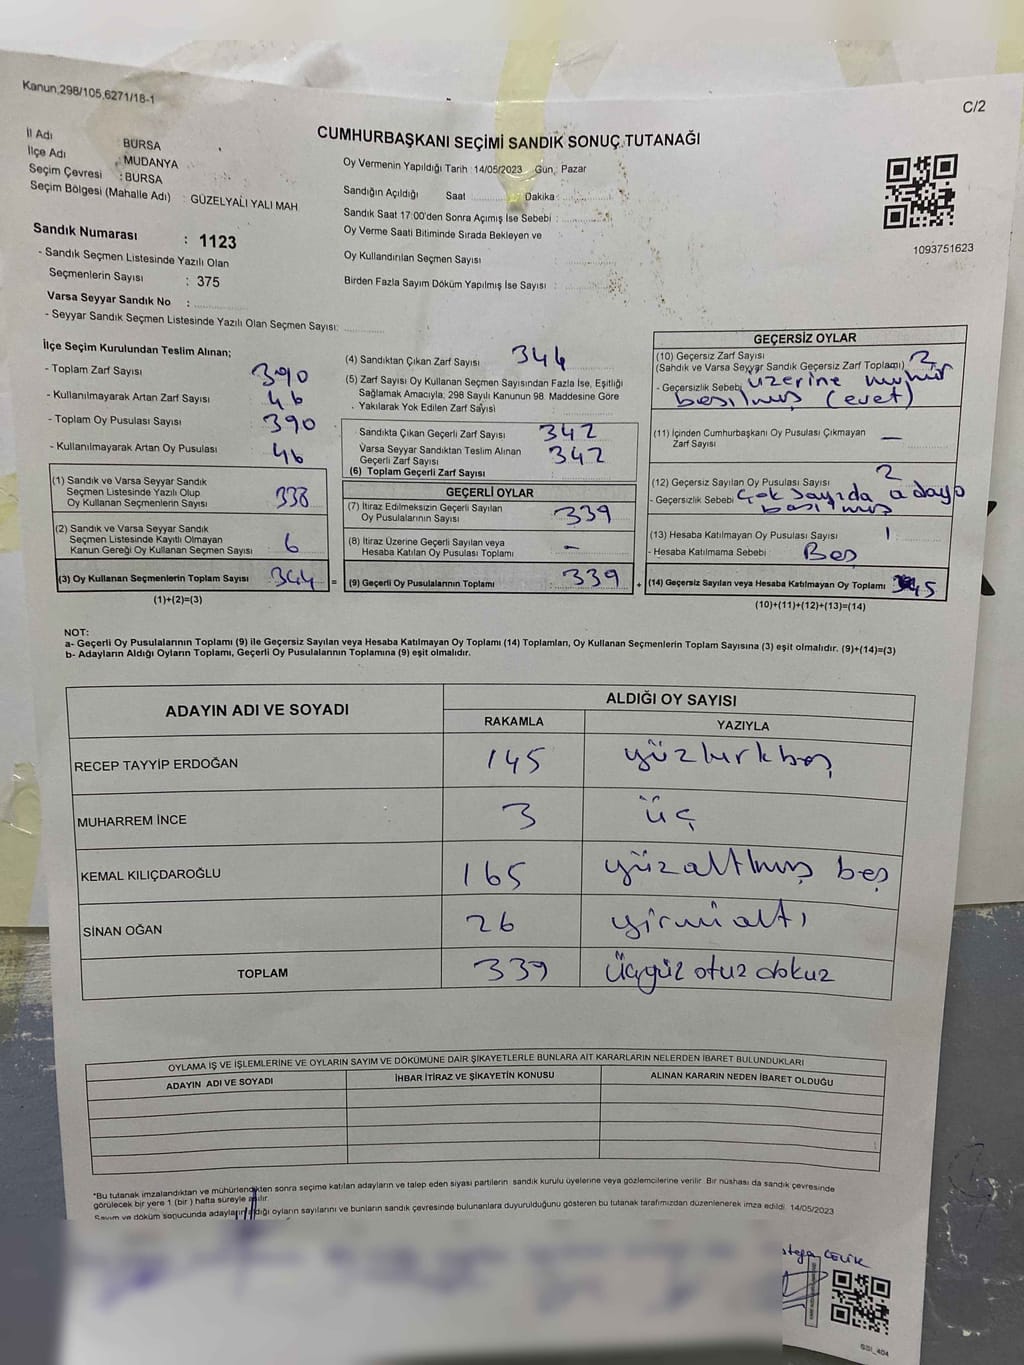 Kanun,298/105,6271/18-1
C/2
CUMHURBAŞKANI SEÇİMİ SANDIK SONUÇ TUTANAĞI
İl Adı : BURSA
İlçe Adı : MUDANYA
Seçim Çevresi : BURSA
Seçim Bölgesi (Mahalle Adı) : GÜZELYALI YALI MAH
Sandık Numarası : 1123
- Sandık Seçmen Listesinde Yazılı Olan
Seçmenlerin Sayısı : 375
Varsa Seyyar Sandık No :
- Seyyar Sandık Seçmen Listesinde Yazılı Olan Seçmen Sayısı:
Oy Vermenin Yapıldığı Tarih : 14/05/2023 Gün, Pazar
Sandığın Açıldığı Saat Dakika
Sandık Saat 17:00'den Sonra Açımış İse Sebebi :
Oy Verme Saati Bitiminde Sırada Bekleyen ve
Oy Kullandırılan Seçmen Sayısı :
Birden Fazla Sayım Döküm Yapılmış İse Sayısı :
1093751623
İlçe Seçim Kurulundan Teslim Alınan;
- Toplam Zarf Sayısı 390
- Kullanılmayarak Artan Zarf Sayısı 46
- Toplam Oy Pusulası Sayısı 390
- Kullanılmayarak Artan Oy Pusulası 46
(1) Sandık ve Varsa Seyyar Sandık
Seçmen Listesinde Yazılı Olup
Oy Kullanan Seçmenlerin Sayısı 338
(2) Sandık ve Varsa Seyyar Sandık
Seçmen Listesinde Kayıtlı Olmayan
Kanun Gereği Oy Kullanan Seçmen Sayısı 6
(3) Oy Kullanan Seçmenlerin Toplam Sayısı 344 =
(1)+(2)=(3)
(4) Sandıktan Çıkan Zarf Sayısı 344
(5) Zarf Sayısı Oy Kullanan Seçmen Sayısından Fazla İse, Eşitliği
Sağlamak Amacıyla, 298 Sayılı Kanunun 98. Maddesine Göre
Yakılarak Yok Edilen Zarf Sayısı
Sandıkta Çıkan Geçerli Zarf Sayısı 342
Varsa Seyyar Sandıktan Teslim Alınan
Geçerli Zarf Sayısı 342
(6) Toplam Geçerli Zarf Sayısı
GEÇERLİ OYLAR
(7) İtiraz Edilmeksizin Geçerli Sayılan
Oy Pusulalarının Sayısı 339
(8) İtiraz Üzerine Geçerli Sayılan veya
Hesaba Katılan Oy Pusulası Toplamı -
(9) Geçerli Oy Pusulalarının Toplamı 339 +
GEÇERSİZ OYLAR
(10) Geçersiz Zarf Sayısı
(Sandık ve Varsa Seyyar Sandık Geçersiz Zarf Toplamı) 2
- Geçersizlik Sebebi üzerine mühür
basılmış (evet)
(11) İçinden Cumhurbaşkanı Oy Pusulası Çıkmayan
Zarf Sayısı —
(12) Geçersiz Sayılan Oy Pusulası Sayısı 2
- Geçersizlik Sebebi Çok sayıda adaya
basılmış
(13) Hesaba Katılmayan Oy Pusulası Sayısı 1
- Hesaba Katılmama Sebebi Boş
(14) Geçersiz Sayılan veya Hesaba Katılmayan Oy Toplamı 5
(10)+(11)+(12)+(13)=(14)
NOT:
a- Geçerli Oy Pusulalarının Toplamı (9) ile Geçersiz Sayılan veya Hesaba Katılmayan Oy Toplamı (14) Toplamları, Oy Kullanan Seçmenlerin Toplam Sayısına (3) eşit olmalıdır. (9)+(14)=(3)
b- Adayların Aldığı Oyların Toplamı, Geçerli Oy Pusulalarının Toplamına (9) eşit olmalıdır.
ADAYIN ADI VE SOYADI ALDIĞI OY SAYISI
RAKAMLA YAZIYLA
RECEP TAYYİP ERDOĞAN 145 yüzkırkbeş
MUHARREM İNCE 3 üç
KEMAL KILIÇDAROĞLU 165 yüzaltmış beş
SİNAN OĞAN 26 yirmialtı
TOPLAM 339 üçyüz otuz dokuz
OYLAMA İŞ VE İŞLEMLERİNE VE OYLARIN SAYIM VE DÖKÜMÜNE DAİR ŞİKAYETLERLE BUNLARA AİT KARARLARIN NELERDEN İBARET BULUNDUKLARI
ADAYIN ADI VE SOYADI İHBAR İTİRAZ VE ŞİKAYETİN KONUSU ALINAN KARARIN NEDEN İBARET OLDUĞU
*Bu tutanak imzalandıktan ve mühürlendikten sonra seçime katılan adayların ve talep eden siyasi partilerin sandık kurulu üyelerine veya gözlemcilerine verilir. Bir nüshası da sandık çevresinde
görülecek bir yere 1 (bir) hafta süreyle asılır.
Sayım ve döküm sonucunda adayların aldığı oyların sayılarını ve bunların sandık çevresinde bulunanlara duyurulduğunu gösteren bu tutanak tarafımızdan düzenlenerek imza edildi. 14/05/2023
ÇELİK